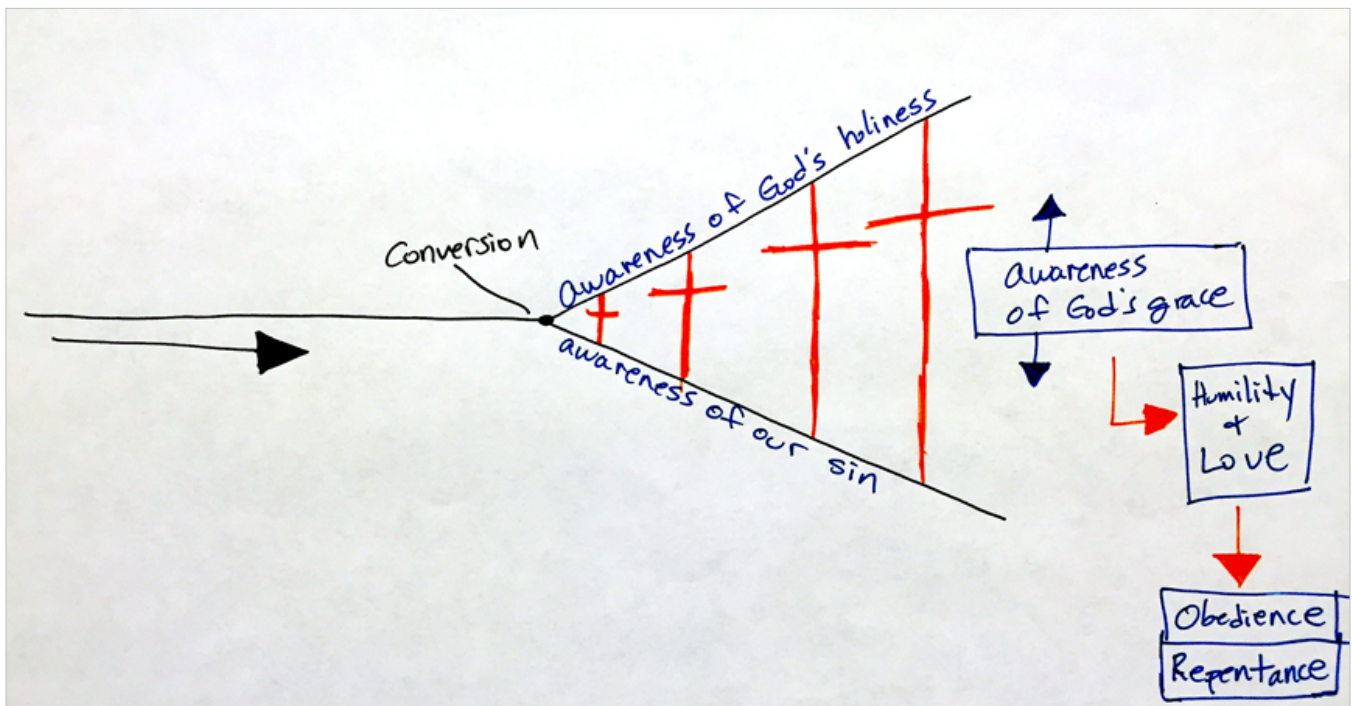 Conversion
awareness of God's holiness
awareness of our sin
awareness
of God's grace
Humility
+
Love
Obedience
Repentance